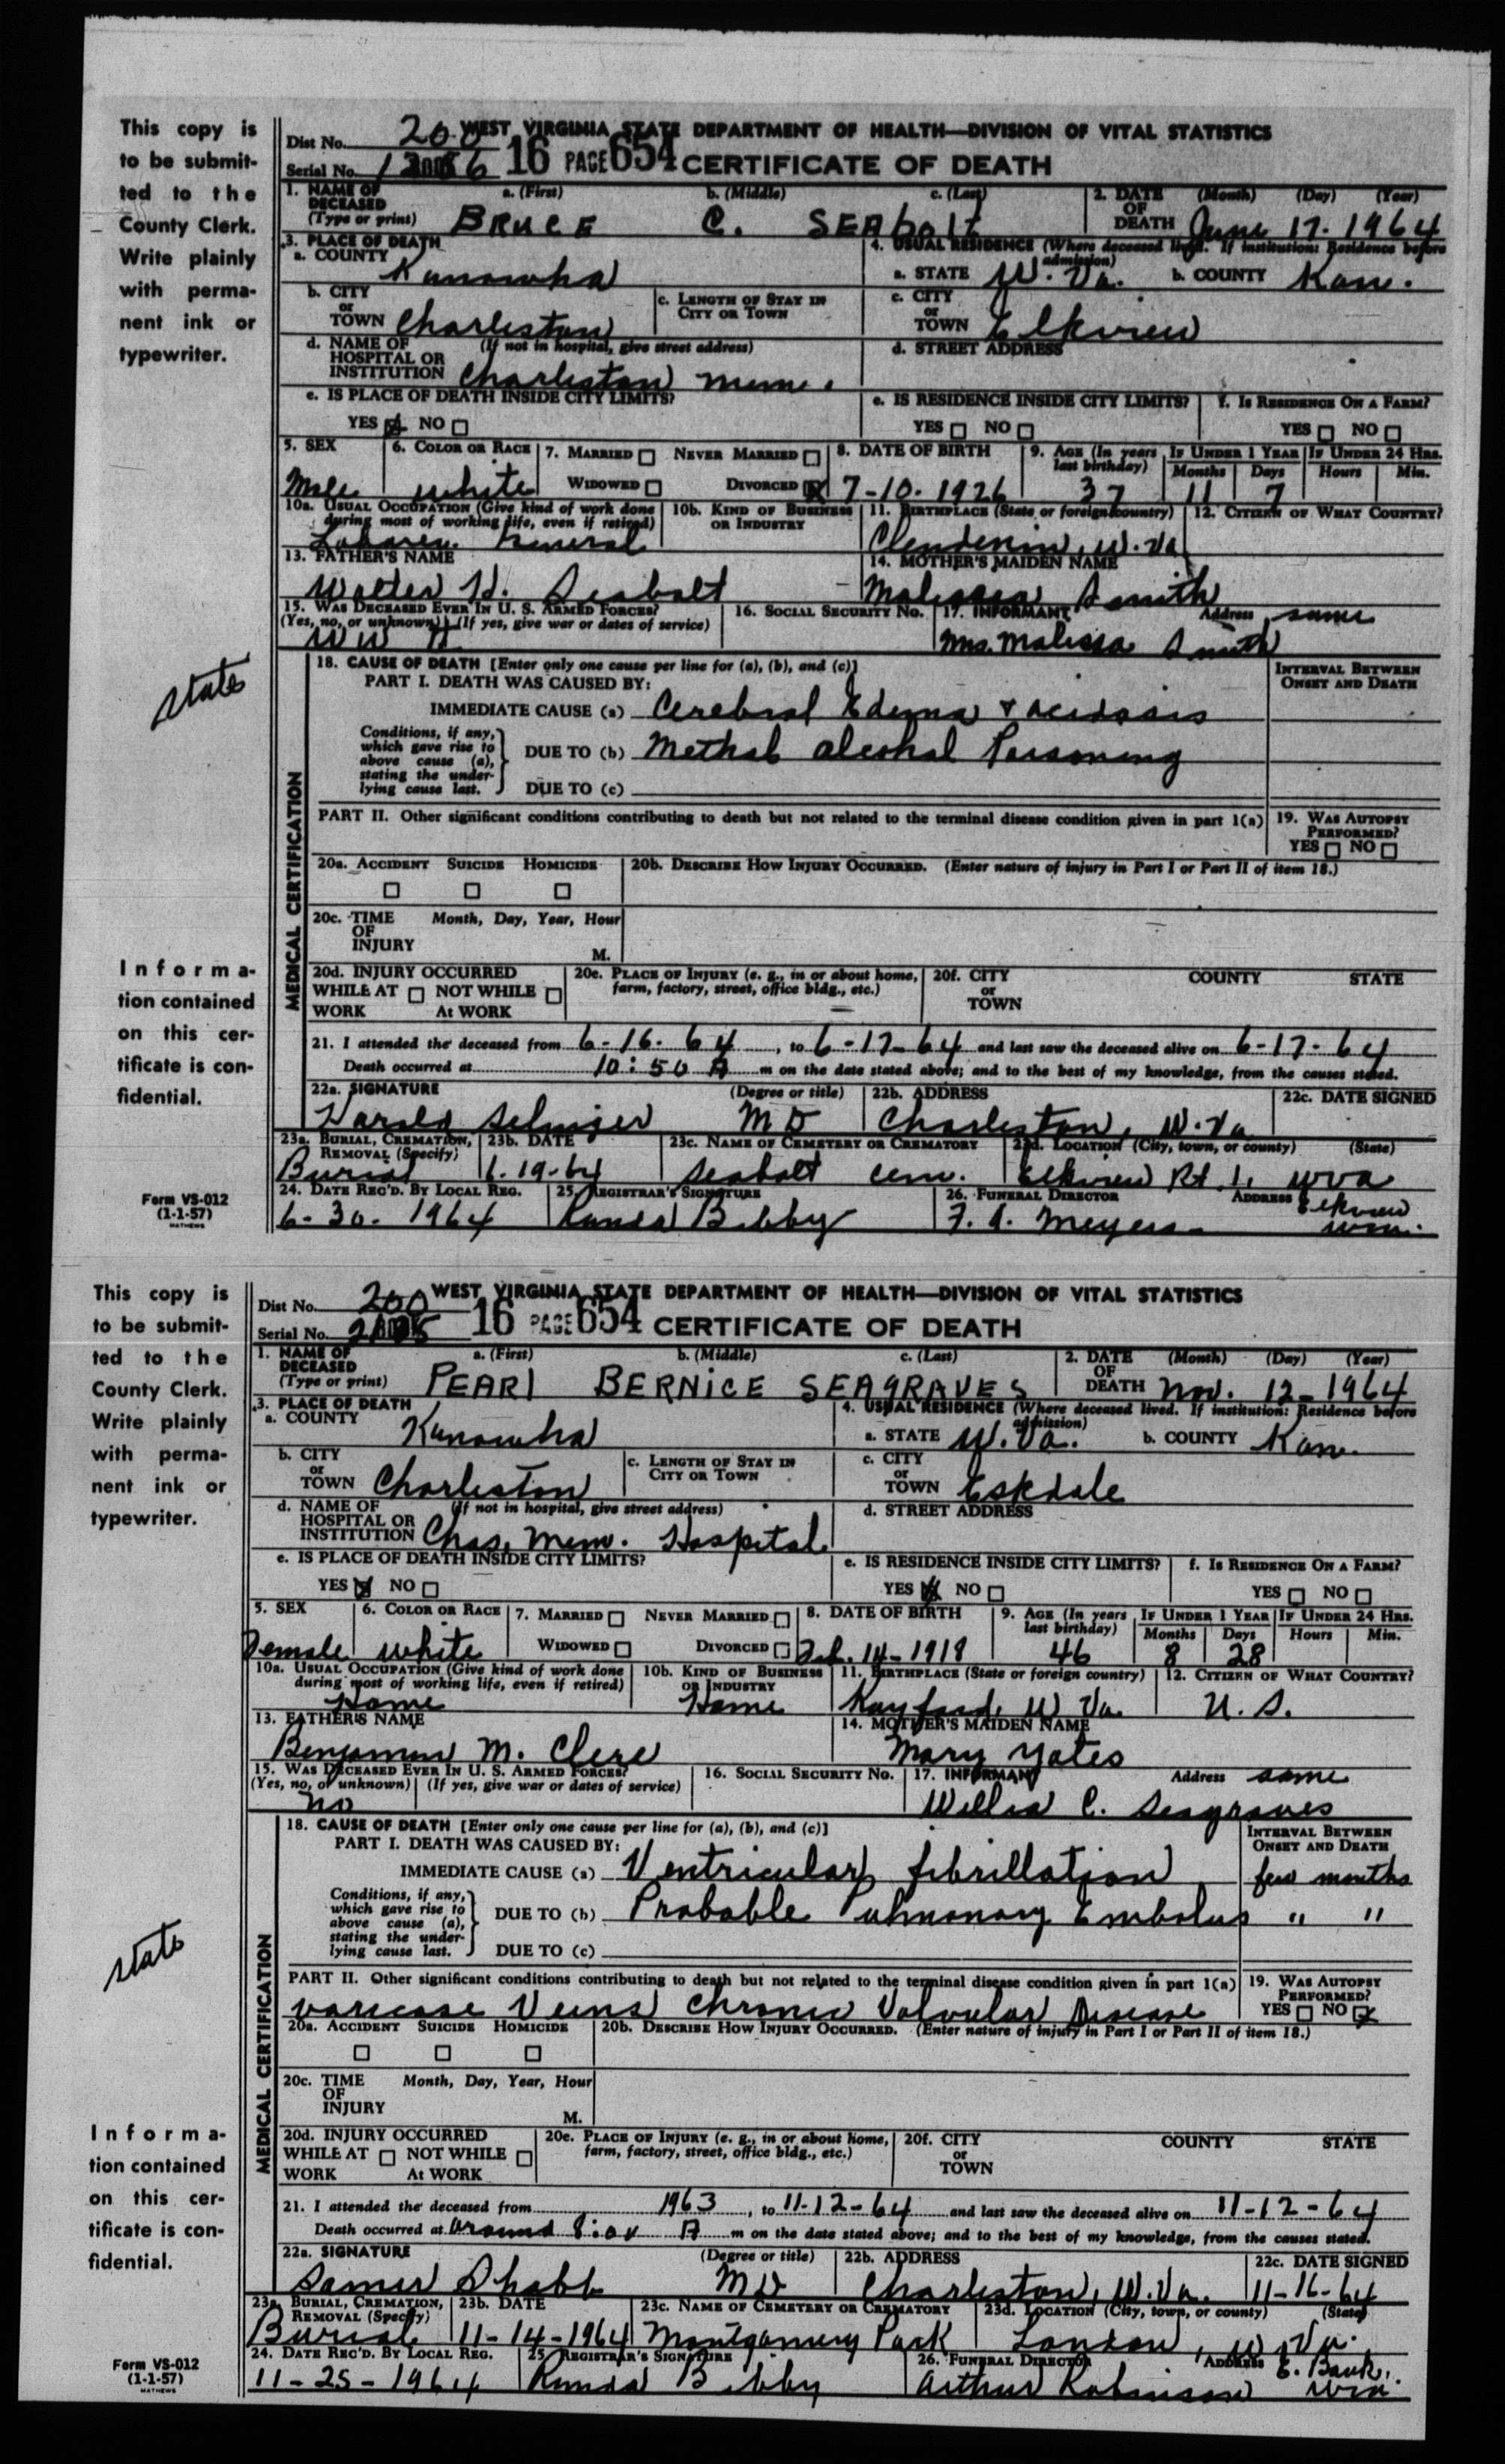 This copy is
to be submit-
ted to the
County Clerk.
Write plainly
with perma-
nent ink or
typewriter.
state
Informa-
tion contained
on this cer-
tificate is con-
fidential.
Form VS-012
(1-1-57)
MATHEWS
WEST VIRGINIA STATE DEPARTMENT OF HEALTH—DIVISION OF VITAL STATISTICS
Dist No. 200
Serial No. 16 PAGE 654 CERTIFICATE OF DEATH
1. NAME OF DECEASED (Type or print) a. (First) b. (Middle) c. (Last) 2. DATE OF DEATH (Month) (Day) (Year)
BRUCE C. SEAbolt June 17. 1964
3. PLACE OF DEATH 4. USUAL RESIDENCE (Where deceased lived. If institution: Residence before admission)
a. COUNTY Kanawha a. STATE W. Va. b. COUNTY Kan.
b. CITY or TOWN Charleston c. LENGTH OF STAY IN CITY OR TOWN c. CITY or TOWN Elkview
d. NAME OF HOSPITAL OR INSTITUTION (If not in hospital, give street address) Charleston Mem. d. STREET ADDRESS
e. IS PLACE OF DEATH INSIDE CITY LIMITS? e. IS RESIDENCE INSIDE CITY LIMITS? f. IS RESIDENCE ON A FARM?
YES NO YES NO YES NO
5. SEX 6. COLOR OR RACE 7. MARRIED NEVER MARRIED 8. DATE OF BIRTH 9. AGE (In years last birthday) IF UNDER 1 YEAR IF UNDER 24 HRS.
Months Days Hours Min.
Male white WIDOWED DIVORCED 7-10-1926 37 11 7
10a. USUAL OCCUPATION (Give kind of work done during most of working life, even if retired) 10b. KIND OF BUSINESS OR INDUSTRY 11. BIRTHPLACE (State or foreign country) 12. CITIZEN OF WHAT COUNTRY?
General Clendenin, W. Va
13. FATHER'S NAME 14. MOTHER'S MAIDEN NAME
Walter H. Seabolt Malissa Smith
15. WAS DECEASED EVER IN U. S. ARMED FORCES? 16. SOCIAL SECURITY No. 17. INFORMANT Address same
(Yes, no, or unknown) (If yes, give war or dates of service)
WW II Mrs. Malissa Smith
MEDICAL CERTIFICATION
18. CAUSE OF DEATH [Enter only one cause per line for (a), (b), and (c)] INTERVAL BETWEEN ONSET AND DEATH
PART I. DEATH WAS CAUSED BY:
IMMEDIATE CAUSE (a) Cerebral Edema + acidosis
Conditions, if any, which gave rise to above cause (a), stating the under-lying cause last.
DUE TO (b) Methal alcohal Poisoning
DUE TO (c)
PART II. Other significant conditions contributing to death but not related to the terminal disease condition given in part 1(a) 19. WAS AUTOPSY PERFORMED?
YES NO
20a. ACCIDENT SUICIDE HOMICIDE 20b. DESCRIBE HOW INJURY OCCURRED. (Enter nature of injury in Part I or Part II of item 18.)
20c. TIME OF INJURY Month, Day, Year, Hour M.
20d. INJURY OCCURRED 20e. PLACE OF INJURY (e. g., in or about home, farm, factory, street, office bldg., etc.) 20f. CITY or TOWN COUNTY STATE
WHILE AT WORK NOT WHILE At WORK
21. I attended the deceased from 6-16-64, to 6-17-64 and last saw the deceased alive on 6-17-64
Death occurred at 10:50 A m on the date stated above; and to the best of my knowledge, from the causes stated.
22a. SIGNATURE (Degree or title) 22b. ADDRESS 22c. DATE SIGNED
Harold Selinger MD Charleston, W. Va
23a. BURIAL, CREMATION, REMOVAL (Specify) 23b. DATE 23c. NAME OF CEMETERY OR CREMATORY 23d. LOCATION (City, town, or county) (State)
Burial 6-19-64 Seabolt Cem. Elkview Rt. 1, WVa
24. DATE REC'D. BY LOCAL REG. 25. REGISTRAR'S SIGNATURE 26. FUNERAL DIRECTOR ADDRESS
6-30-1964 Bibby Meyers Elkview
This copy is
to be submit-
ted to the
County Clerk.
Write plainly
with perma-
nent ink or
typewriter.
state
Informa-
tion contained
on this cer-
tificate is con-
fidential.
Form VS-012
(1-1-57)
MATHEWS
WEST VIRGINIA STATE DEPARTMENT OF HEALTH—DIVISION OF VITAL STATISTICS
Dist No. 200
Serial No. 16 PAGE 654 CERTIFICATE OF DEATH
1. NAME OF DECEASED (Type or print) a. (First) b. (Middle) c. (Last) 2. DATE OF DEATH (Month) (Day) (Year)
PEARl BERNICE SEAGRAVES Nov. 12-1964
3. PLACE OF DEATH 4. USUAL RESIDENCE (Where deceased lived. If institution: Residence before admission)
a. COUNTY Kanawha a. STATE W. Va. b. COUNTY Kan.
b. CITY or TOWN Charleston c. LENGTH OF STAY IN CITY OR TOWN c. CITY or TOWN Eskdale
d. NAME OF HOSPITAL OR INSTITUTION (If not in hospital, give street address) Chas. Mem. Hospital d. STREET ADDRESS
e. IS PLACE OF DEATH INSIDE CITY LIMITS? e. IS RESIDENCE INSIDE CITY LIMITS? f. IS RESIDENCE ON A FARM?
YES NO YES NO YES NO
5. SEX 6. COLOR OR RACE 7. MARRIED NEVER MARRIED 8. DATE OF BIRTH 9. AGE (In years last birthday) IF UNDER 1 YEAR IF UNDER 24 HRS.
Months Days Hours Min.
Female white WIDOWED DIVORCED Feb. 14-1918 46 8 28
10a. USUAL OCCUPATION (Give kind of work done during most of working life, even if retired) 10b. KIND OF BUSINESS OR INDUSTRY 11. BIRTHPLACE (State or foreign country) 12. CITIZEN OF WHAT COUNTRY?
Home Home Kayford, W Va. U. S.
13. FATHER'S NAME 14. MOTHER'S MAIDEN NAME
Benjamin M. Clere Mary Yates
15. WAS DECEASED EVER IN U. S. ARMED FORCES? 16. SOCIAL SECURITY No. 17. INFORMANT Address same
(Yes, no, or unknown) (If yes, give war or dates of service)
no C. Seagraves
MEDICAL CERTIFICATION
18. CAUSE OF DEATH [Enter only one cause per line for (a), (b), and (c)] INTERVAL BETWEEN ONSET AND DEATH
PART I. DEATH WAS CAUSED BY:
IMMEDIATE CAUSE (a) Ventricular fibrillation few months
Conditions, if any, which gave rise to above cause (a), stating the under-lying cause last.
DUE TO (b) Probable Pulmonary Embolus " "
DUE TO (c)
PART II. Other significant conditions contributing to death but not related to the terminal disease condition given in part 1(a) 19. WAS AUTOPSY PERFORMED?
varicose Veins Chronic Valvular Disease YES NO
20a. ACCIDENT SUICIDE HOMICIDE 20b. DESCRIBE HOW INJURY OCCURRED. (Enter nature of injury in Part I or Part II of item 18.)
20c. TIME OF INJURY Month, Day, Year, Hour M.
20d. INJURY OCCURRED 20e. PLACE OF INJURY (e. g., in or about home, farm, factory, street, office bldg., etc.) 20f. CITY or TOWN COUNTY STATE
WHILE AT WORK NOT WHILE At WORK
21. I attended the deceased from 1963, to 11-12-64 and last saw the deceased alive on 11-12-64
Death occurred at around 8:00 A m on the date stated above; and to the best of my knowledge, from the causes stated.
22a. SIGNATURE (Degree or title) 22b. ADDRESS 22c. DATE SIGNED
MD Charleston, W. Va. 11-16-64
23a. BURIAL, CREMATION, REMOVAL (Specify) 23b. DATE 23c. NAME OF CEMETERY OR CREMATORY 23d. LOCATION (City, town, or county) (State)
Burial 11-14-1964 Montgomery Park London, W. Va.
24. DATE REC'D. BY LOCAL REG. 25. REGISTRAR'S SIGNATURE 26. FUNERAL DIRECTOR ADDRESS
11-25-1964 Bibby Arthur Robinson E. Bank,